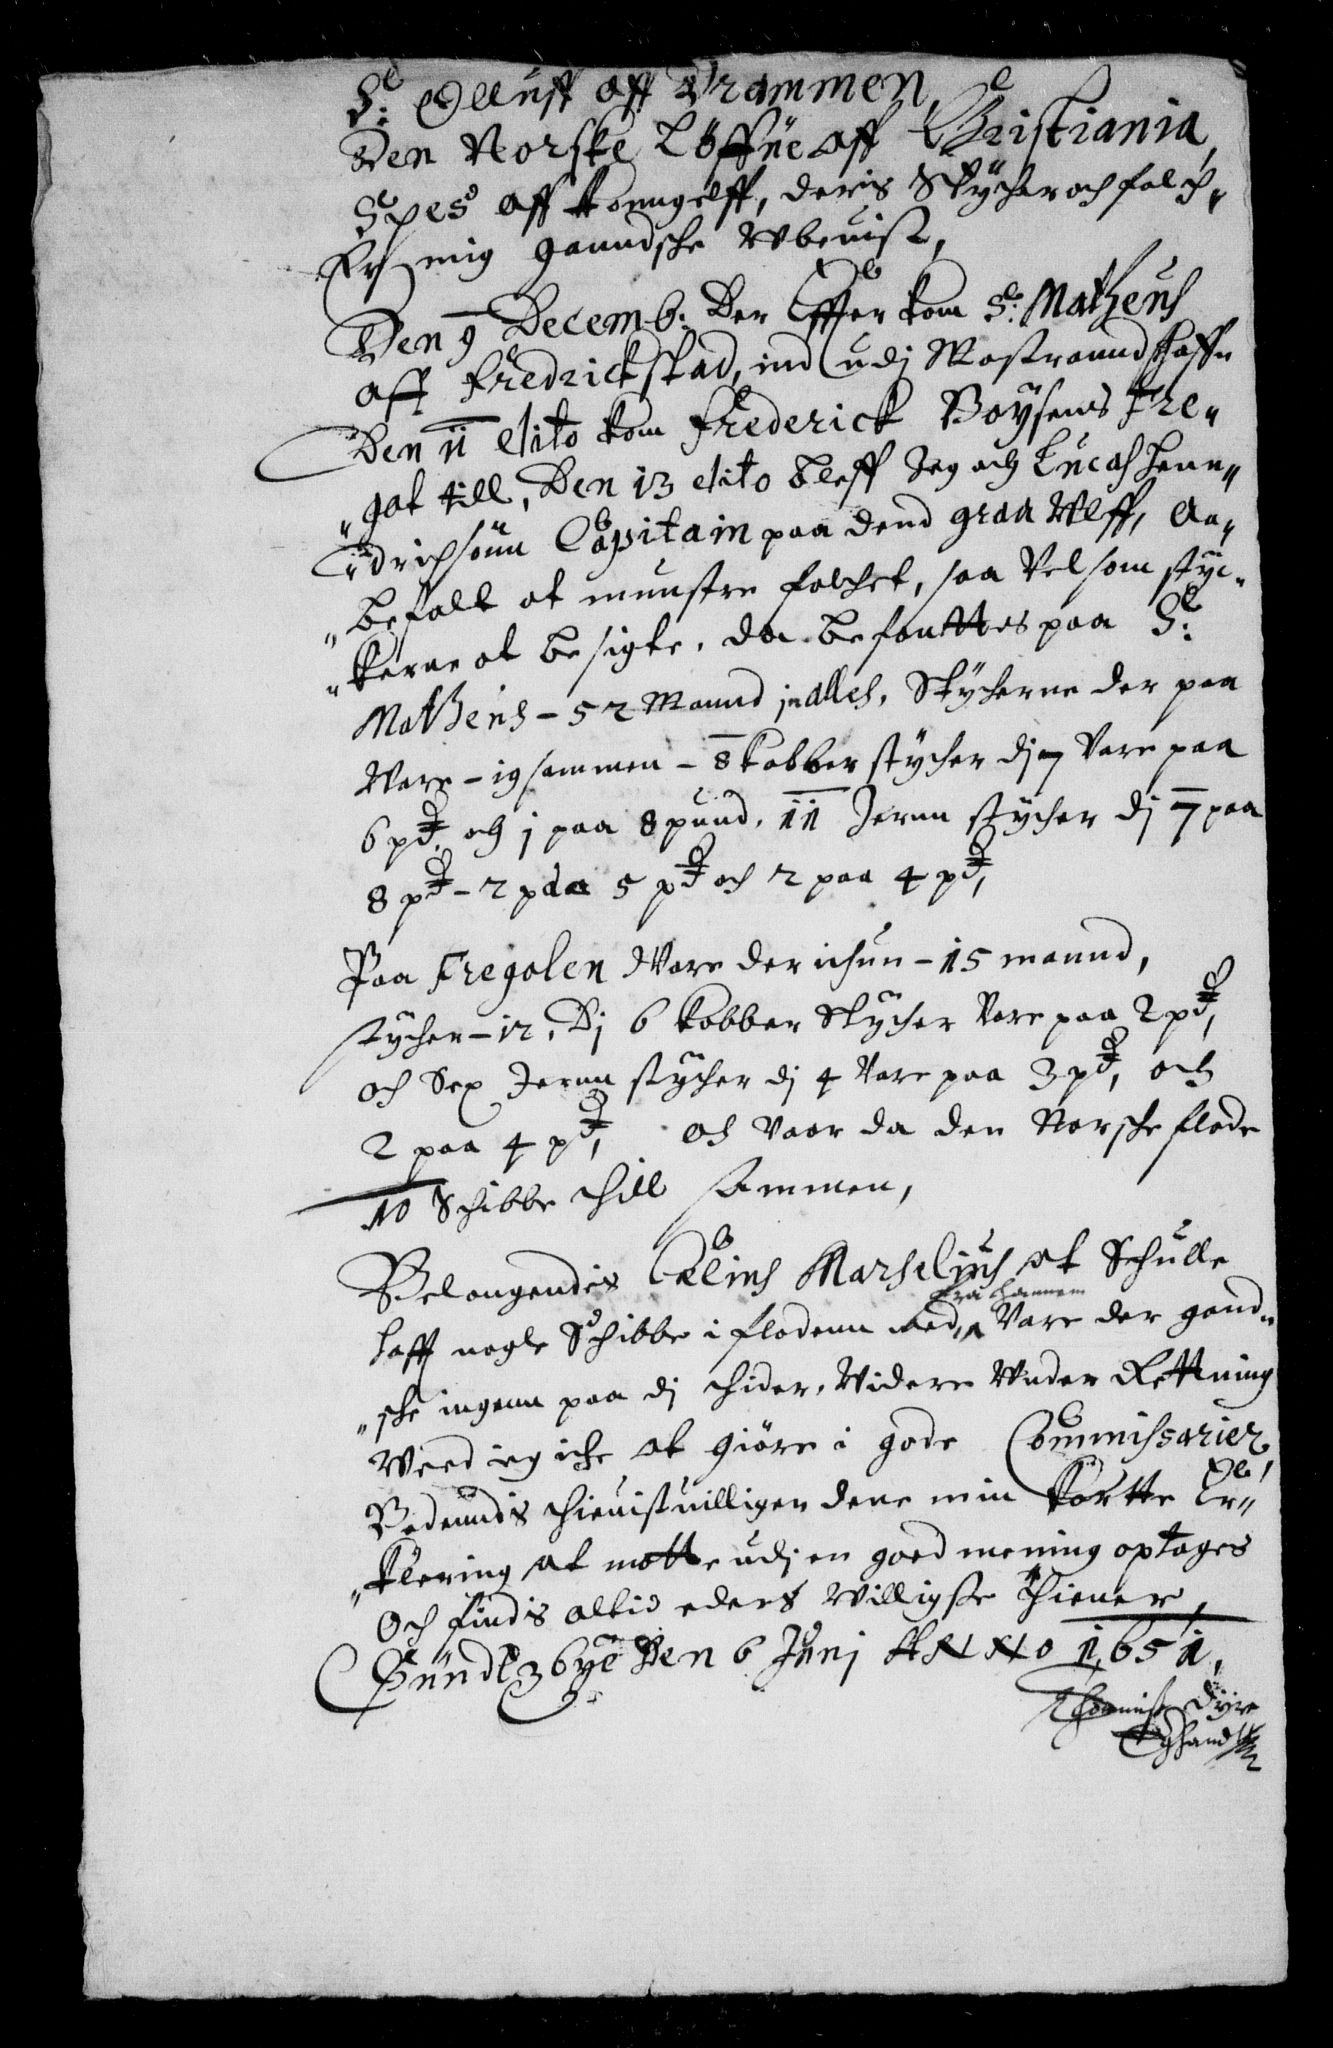 S: Olluff aff Drammen,
Den Norske Löffue aff Christiania,
Spes aff Konngelff, deris Stycher och folch„
Er mig ganndsche Wbeuist,
Den 9 Decemb: Der Effter kom S: Matheus
aff Fredrickstad, ind udj Mastrannd haffn
Den 11 dito kom Frederick Boÿsens Fre„
„gat till, Den 13 dito bleff Jeg och Lucas Henn„
„drichsönn Capitain paa dend graa Wlff, An„
„befalt at munstre folchet, saa Vel som styc„
„kerne at besigte, da befanttes paa S:
Matheus – 52 Mannd jalles, Stycherne der paa
Vare – 19 sammen – 8 kobber stycher dj 7 Vare paa
6 pd och 1 paa 8 pund, 11 Jernn stycher dj 7 paa
8 pd – 2 paa 5 pd och 2 paa 4 pd,
Paa Fregaten Vare der ichun – 15 mannd,
stycher – 12, Dj 6 kobber Stycher Vare paa 2 pd,
och Sex Jernn stycher dj 4 Vare paa 3 pd, och
2 paa 4 pd, och Vaar da den Norsche flode
10 Schibbe thill sammen,
Belangendis Cælius Marselius at Schulle
haff nogle Schibbe i flodenn med, Vare der gand„
fra hannem
„sche ingenn paa dj thider, Videre Under Rettning
Weed ieg iche at giöre i gode Commissarier,
Bedenndis thienistuilligen dene min Kortte Er„
„klering at motte udj en goed mening optages
Och findis altid eders Villigste Thiener,
Sündbÿe Den 6 Junj ANNO 1651,
Thommis Dÿre
Eghand